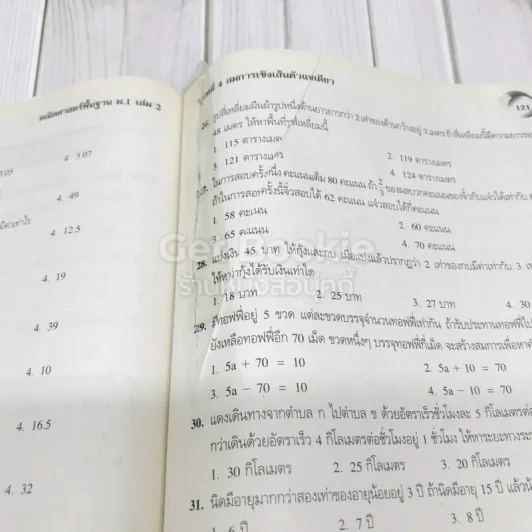 คณิตศาสตร์พื้นฐาน ม.1 เล่ม 2
4. 3.07
3.05
4. 49
มีค่าเท่าไร
4. 12.5
4. 19
4. 39
4. 10
4. 16.5
4. 32
4 สมการเชิงเส้นตัวแปรเดียว
121
26. รูปสี่เหลี่ยมผืนผ้ารูปหนึ่งด้านยาวยาวกว่า 2 เท่าของด้านกว้างอยู่ 3 เมตร ถ้าสี่เหลี่ยมนี้มีความยาวรอบ
48 เมตร ให้หาพื้นที่รูปสี่เหลี่ยมนี้
1. 115 ตารางเมตร
2. 119 ตารางเมตร
3. 121 ตารางเมตร
4. 124 ตารางเมตร
27. ในการสอบครั้งหนึ่ง คะแนนเต็ม 80 คะแนน ถ้า 2/3 ของผลบวกคะแนนของจิ๋วกับแจ๋วได้เท่ากับ
ถ้าในการสอบครั้งนี้จิ๋วสอบได้ 62 คะแนน แจ๋วสอบได้กี่คะแนน
1. 58 คะแนน
2. 60 คะแนน
3. 65 คะแนน
4. 70 คะแนน
28. แบ่งเงิน 45 บาท ให้กุ้งและกบ เมื่อแบ่งแล้วปรากฏว่า 2 เท่าของกบมีค่าเท่ากับ 3 เท
ให้หาว่ากุ้งได้รับเงินเท่าใด
1. 18 บาท
2. 25 บาท
3. 27 บาท
4. 30
29. มีทอฟฟี่อยู่ 5 ขวด แต่ละขวดบรรจุจำนวนทอฟฟี่เท่ากัน ถ้ารับประทานทอฟฟี่ไป
ยังเหลือทอฟฟี่อีก 70 เม็ด ขวดหนึ่งๆ บรรจุทอฟฟี่กี่เม็ด จะสร้างสมการเพื่อหาคำ
1. 5a + 70 = 10
2. 5a + 10 = 70
3. 5a − 70 = 10
4. 5a − 10 = 70
30. แดงเดินทางจากตำบล ก ไปตำบล ข ด้วยอัตราเร็วชั่วโมงละ 5 กิโลเมตร
กว่าเดินด้วยอัตราเร็ว 4 กิโลเมตรต่อชั่วโมงอยู่ 1 ชั่วโมง ให้หาระยะทางระ
1. 30 กิโลเมตร
2. 25 กิโลเมตร
3. 20 กิโลเมตร
31. นิดมีอายุมากกว่าสองเท่าของอายุน้อยอยู่ 3 ปี ถ้านิดมีอายุ 15 ปี แล้วน้
1. 6 ปี
2. 7 ปี
3. 8 ปี
Get Bookie
ร้านหนังสือบุ๊คกี้